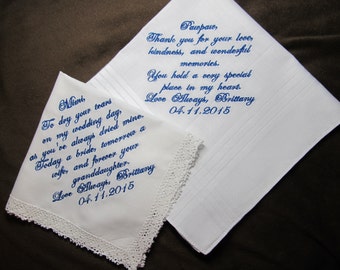 Pawpaw,
Thank you for your love,
kindness, and wonderful
memories.
You hold a very special
place in my heart.
Love Always, Brittany
04.11.2015
To dry your tears
on my wedding day,
as you've always dried mine.
Today a bride, tomorrow a
wife, and forever your
granddaughter.
Love Always, Brittany
04.11.2015